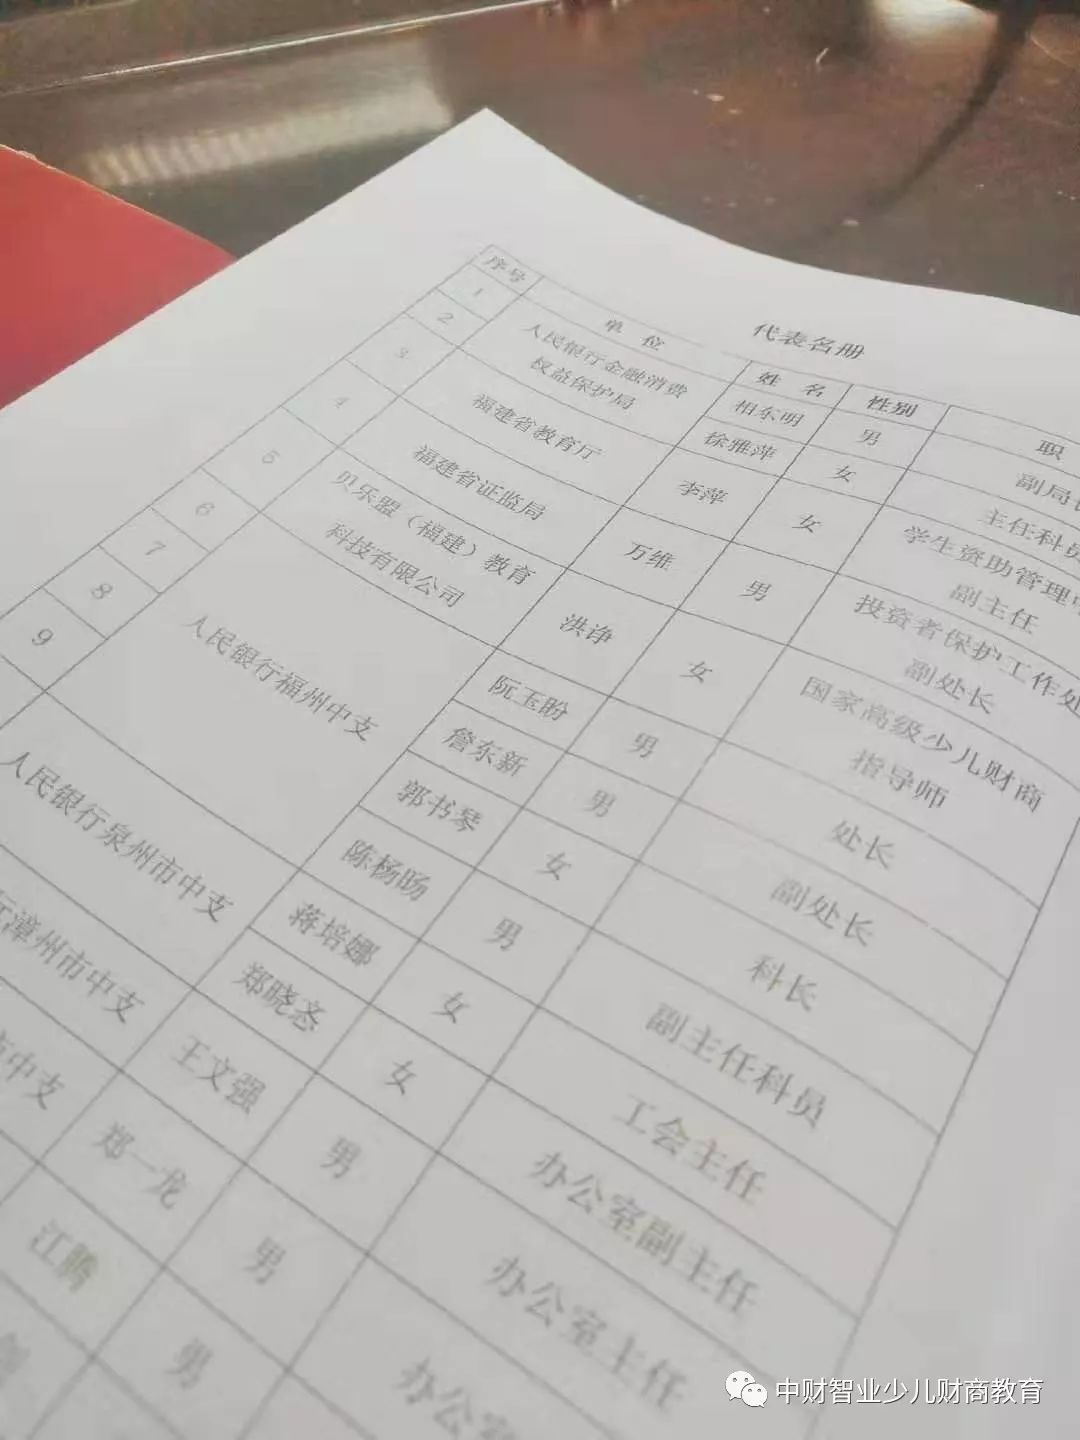 代表名册
序号 单位 姓名 性别 职
1 人民银行金融消费权益保护局 相东明 男 副局
2 徐雅萍 女 主任科员
3 福建省教育厅 李萍 女 学生资助管理
副主任
4 福建省证监局 万维 男 投资者保护工作处
副处长
5 贝乐盟（福建）教育科技有限公司 洪诤 女 国家高级少儿财商
指导师
6 人民银行福州中支 阮玉盼 男 处长
7 詹东新 男 副处长
8 郭书琴 女 科长
9 陈杨旸 男 副主任科员
人民银行泉州市中支 蒋培娜 女 工会主任
郑晓 女 办公室副主任
漳州市中支 王文强 男 办公室主任
市中支 郑一龙 男 办公室
江腾 男
中财智业少儿财商教育